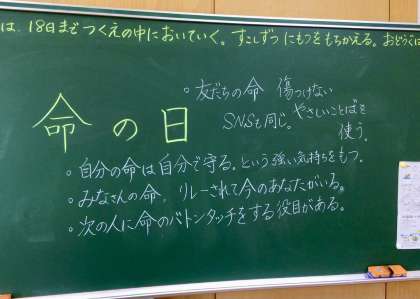 は、18日まで つくえの中において いく。すこしずつ にもつをもちかえる。おどうぐ
命の日
。友だちの命 傷つけない
SNSも同じ。やさしいことばを
使う。
。自分の命は自分で守る。という強い気持ちをもつ。
。みなさんの命。リレーされて今のあなたがいる。
。次の人に命のバトンタッチをする役目がある。